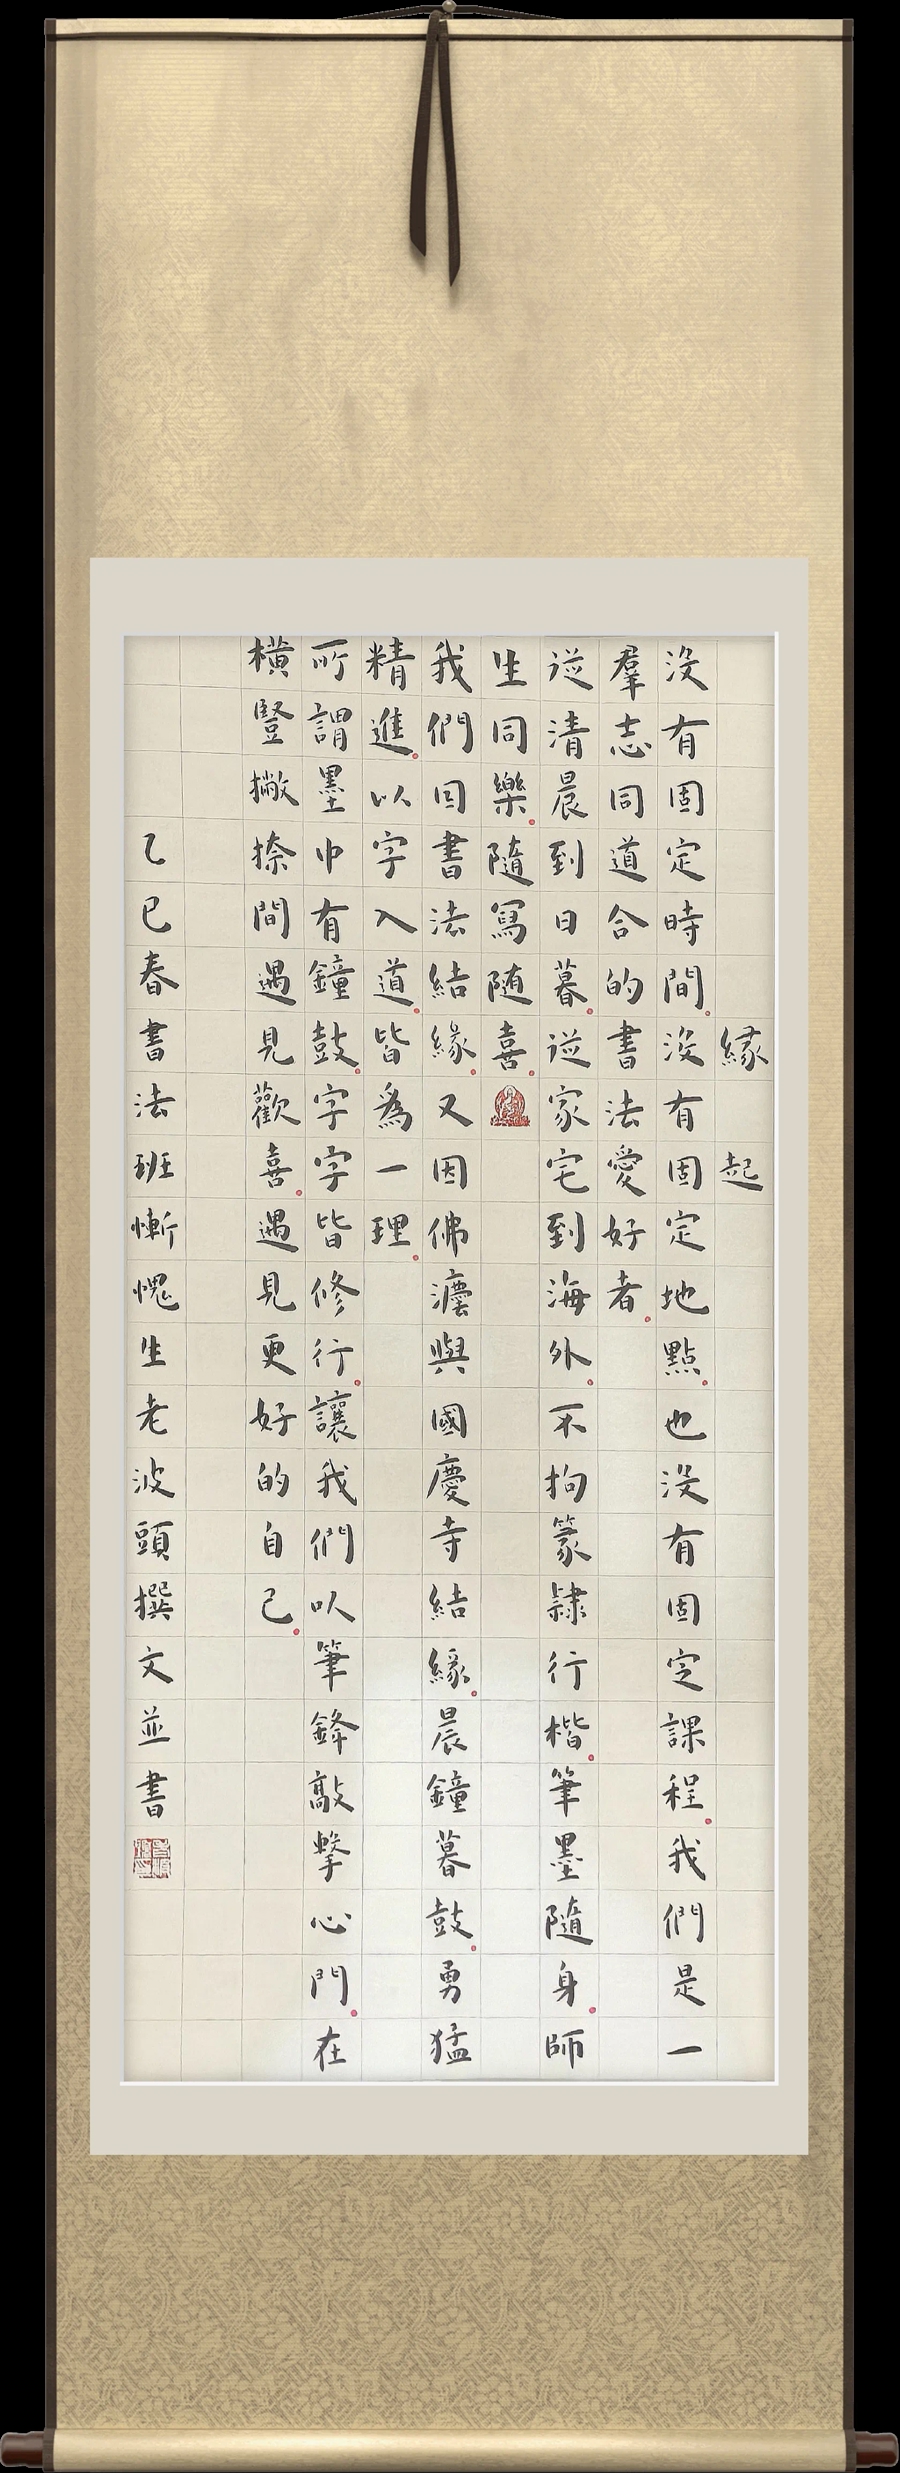 緣起
没有固定時間。没有固定地點。也没有固定課程。我們是一
羣志同道合的書法愛好者。
從清晨到日暮。從家宅到海外。不拘篆隷行楷。筆墨隨身。師
生同樂。隨寫随喜。
我們因書法結緣。又因佛灋與國慶寺結緣。晨鐘暮鼓。勇猛
精進。以字入道。皆爲一理。
所謂墨中有鐘鼓。字字皆修行。讓我們以筆鋒敲擊心門。在
橫豎撇捺間遇見歡喜。遇見更好的自己。
乙巳春書法班慚愧生老波頭撰文並書